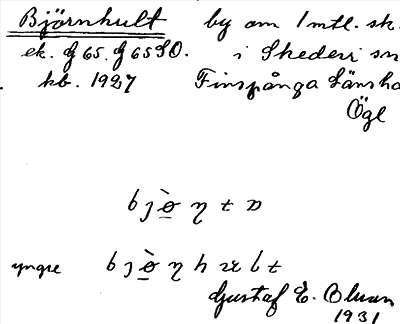 Björnhult by om 1 mtl. sk.
ek. G 65. G 65 SO. i Skedevi sn
kb. 1927 Finspånga Länsha
Ögl
yngre
Gustaf E. Olsson
1931